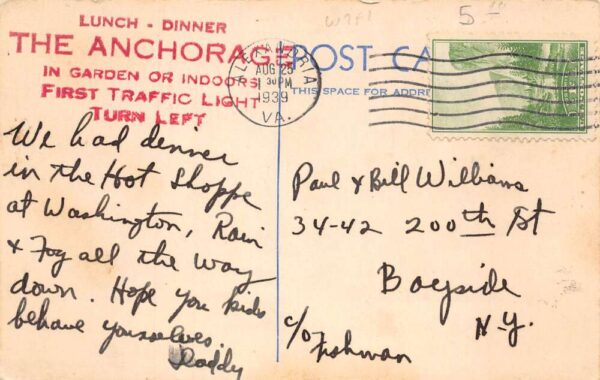 LUNCH - DINNER
THE ANCHORAGE
IN GARDEN OR INDOORS
FIRST TRAFFIC LIGHT
TURN LEFT
POST CA
THIS SPACE FOR ADDRE
ALEXANDRIA
AUG 25
1 30 PM
1939
VA.
5
We had dinner
in the Hot Shoppe
at Washington, Rain
& Fog all the way
down. Hope you kids
behave yourselves.
Daddy
Paul & Bill Williams
34-42 200th St
Bayside
N.Y.
c/o Fishman